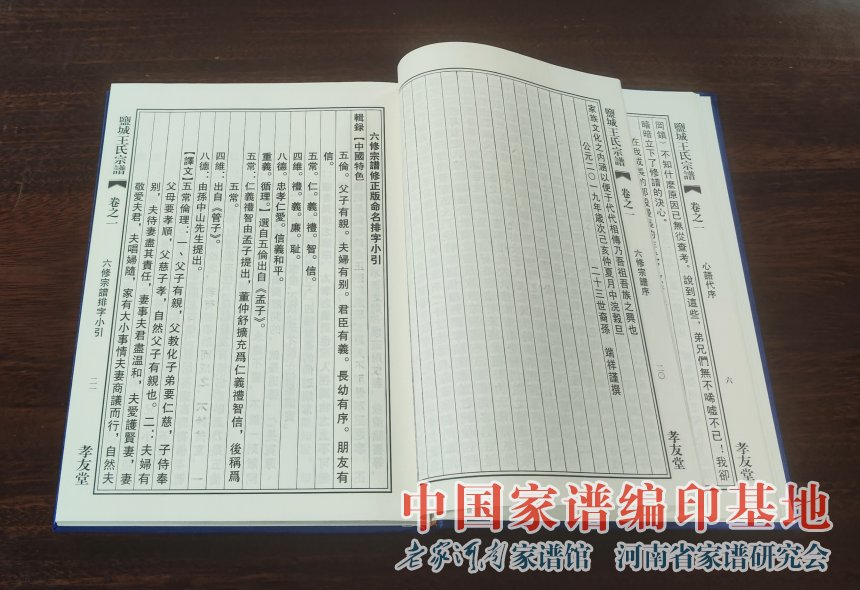 岡鎮）不知什麼原因已無從查考。說到這些，弟兄們無不唏噓不已！我卻
暗暗立下了修譜的決心。
鹽城王氏宗譜 卷之一 心語代序 六 孝友堂
家族文化之内涵以便千代代相傳乃吾祖吾族之興也
公元二〇一九年歲次己亥仲夏月中浣穀旦
二十三世裔孫 端祥謹撰
鹽城王氏宗譜 卷之一 六修宗譜序 二〇 孝友堂
六修宗譜修正版命名排字小引
輯録【中國特色
五倫。父子有親。夫婦有别。君臣有義。長幼有序。朋友有
信。
五常。仁。義。禮。智。信。
四維。禮。義。廉。耻。
八德。忠孝仁愛。信義和平。
重義。循理。】選自五倫出自《孟子》。
五常：仁義禮智由孟子提出，董仲舒擴充爲仁義禮智信，後稱爲
五常。
四維：出自《管子》。
八德：由孫中山先生提出。
【譯文】五常倫理：一、父子有親，父教化子弟要仁慈，子侍奉
父母要孝順，父慈子孝，自然父子有親也。二：夫婦有
别，夫待妻盡其責任，妻事夫君盡温和，夫愛護賢妻，妻
敬愛夫君，夫唱婦隨，家有大小事情夫妻商議而行，自然夫
鹽城王氏宗譜 卷之一 六修宗譜排字小引 二一 孝友堂
中国家谱编印基地
老家河南家谱馆 河南省家谱研究会